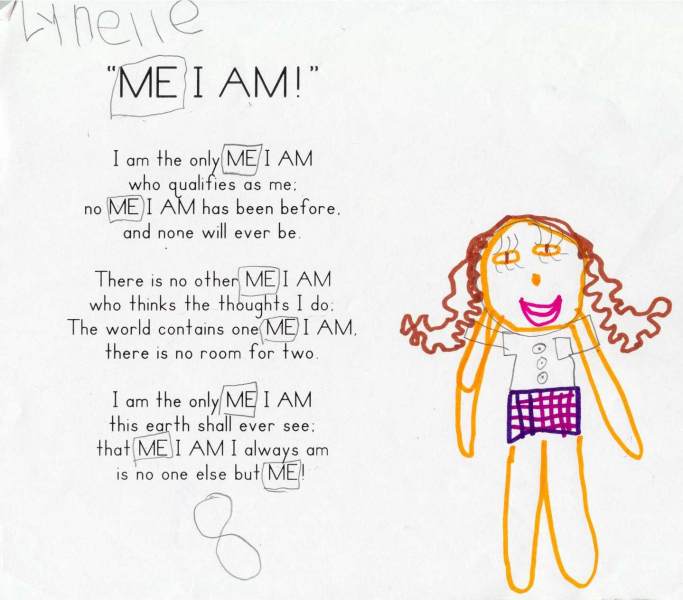 Lynelle
"ME I AM!"
I am the only ME I AM
who qualifies as me;
no ME I AM has been before,
and none will ever be.
There is no other ME I AM
who thinks the thoughts I do;
The world contains one ME I AM,
there is no room for two.
I am the only ME I AM
this earth shall ever see;
that ME I AM I always am
is no one else but ME!
8